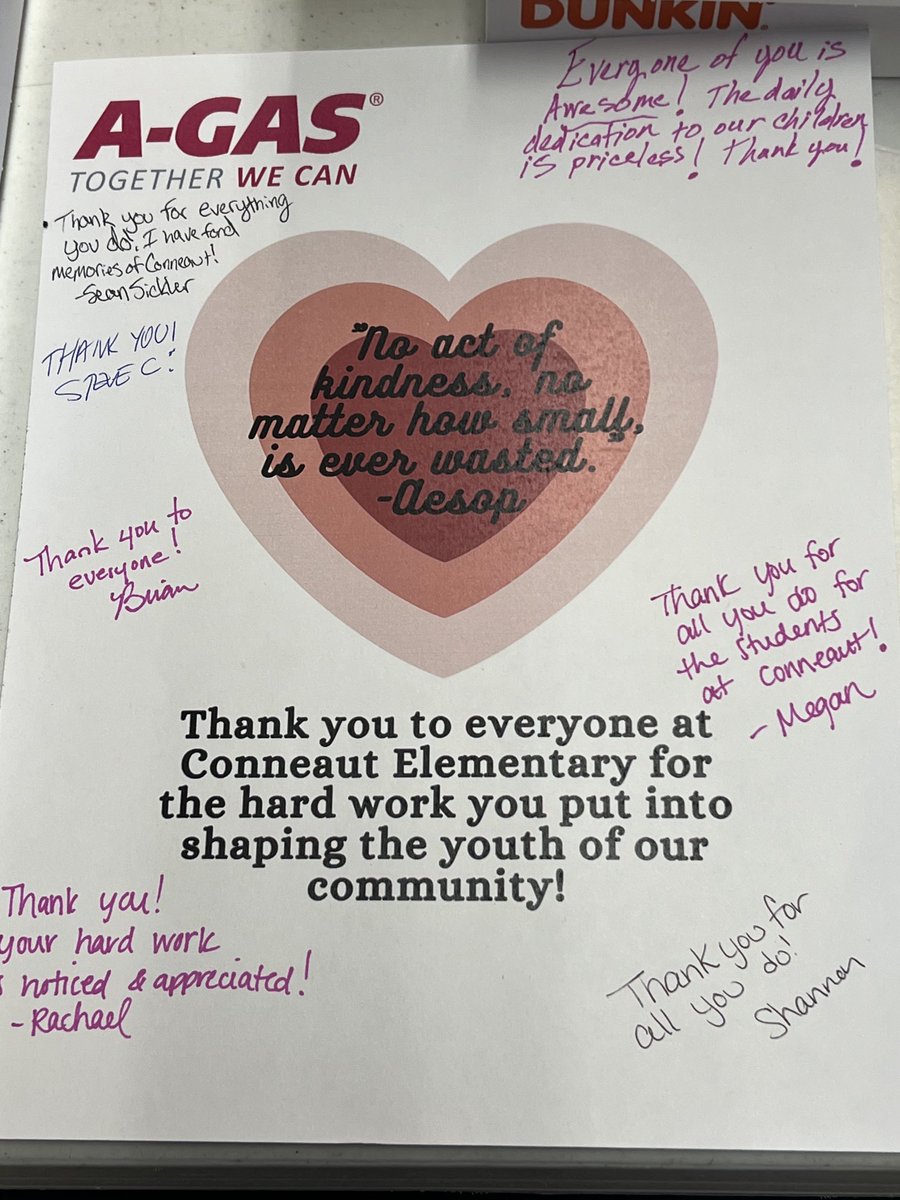 DUNKIN'
A-GAS®
TOGETHER WE CAN
Everyone of you is
Awesome! The daily
dedication to our children
is priceless! Thank you!
• Thank you for everything
you do! I have fond
memories of Conneaut!
-Sean Sickler
THANK YOU!
STEVE C.
"No act of
kindness, no
matter how small,
is ever wasted."
-Aesop
Thank you to
everyone!
Brian
Thank you for
all you do for
the students
at Conneaut!
- Megan
Thank you to everyone at
Conneaut Elementary for
the hard work you put into
shaping the youth of our
community!
Thank you!
your hard work
s noticed & appreciated!
- Rachael
Thank you for
all you do!
Shannon